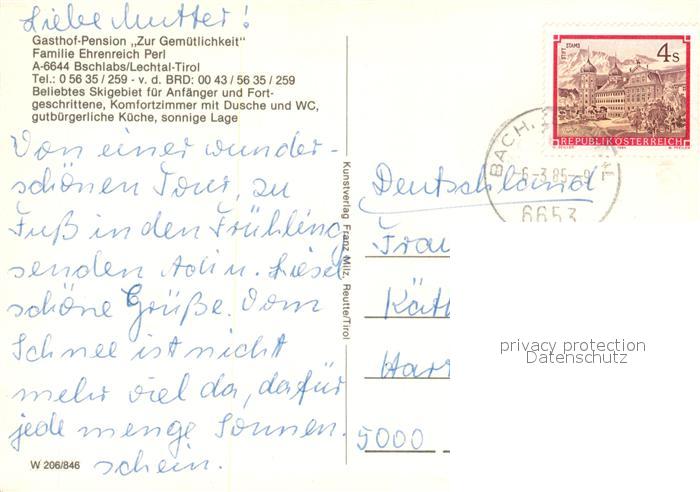 Liebe Mutter!
Gasthof-Pension „Zur Gemütlichkeit“
Familie Ehrenreich Perl
A-6644 Bschlabs/Lechtal-Tirol
Tel.: 0 56 35 / 259 - v. d. BRD: 00 43 / 56 35 / 259
Beliebtes Skigebiet für Anfänger und Fort-
geschrittene, Komfortzimmer mit Dusche und WC,
gutbürgerliche Küche, sonnige Lage
Von einer wunder-
schönen Tour, zu
Fuß in den Frühling
senden Adi u. Liesel
schöne Grüße. Vom
Schnee ist nicht
mehr viel da, dafür
jede menge Sonnen.
schein.
W 206/846
Kunstverlag Franz Milz, Reutte/Tirol
STIFT STAMS
4 S
REPUBLIK ÖSTERREICH
BACH,
6653
Deutschland
Frau
Käth
Harr
5000
privacy protection
Datenschutz